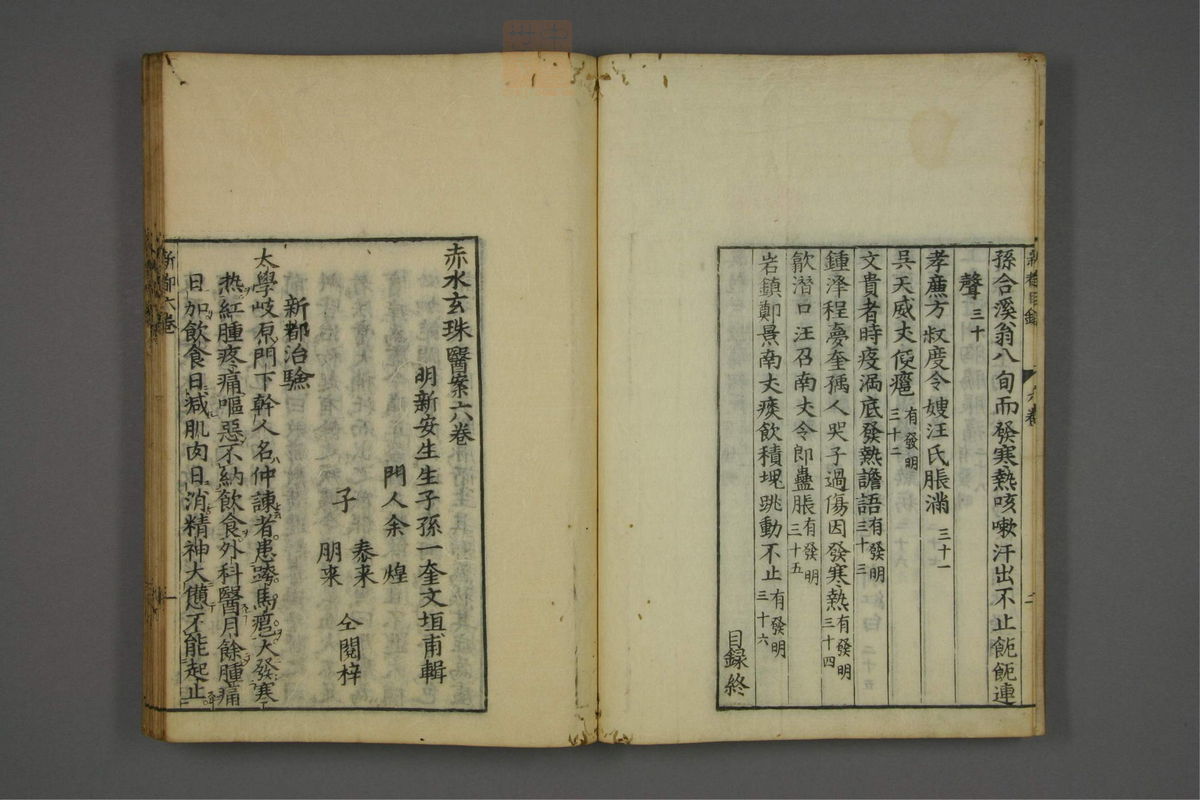 孫合溪翁八旬而發寒熱咳嗽汗出不止飥飥連
聲 三十
孝廉方叔度令嫂汪氏脹滿 三十一
吳天威丈便癰 有發明 三十二
文貴者時疫漏底發熱譫語 有發明 三十三
鍾澤程夢奎孺人哭子過傷因發寒熱 有發明 三十四
歙潛口汪召南丈令郎蠱脹 有發明 三十五
岩鎮鄭景南丈痰飲積塊跳動不止 有發明 三十六
目録終
赤水玄珠醫案六卷
明新安生生子孫一奎文垣甫輯
門人余 煌
子 泰来
朋来 仝閱梓
新都治驗
太學岐原門下幹人名仲諫者患跨馬癰大發寒
热紅腫疼痛嘔惡不納飲食外科醫月餘腫痛
日加飲食日減肌肉日消精神大憊不能起止
新都六卷 一